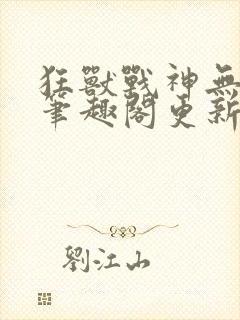 狂獸戰神無
筆趣閣更新
劉江山